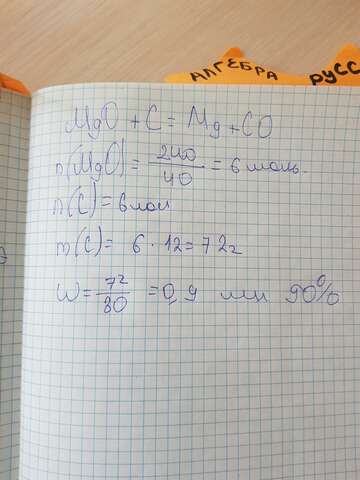 АЛГЕБРА
РУСС
MgO + C = Mg + CO
n(MgO) = 240/40 = 6 моль.
n(C) = 6 мол
m(C) = 6 · 12 = 72г
W = 72/80 = 0,9 или 90%